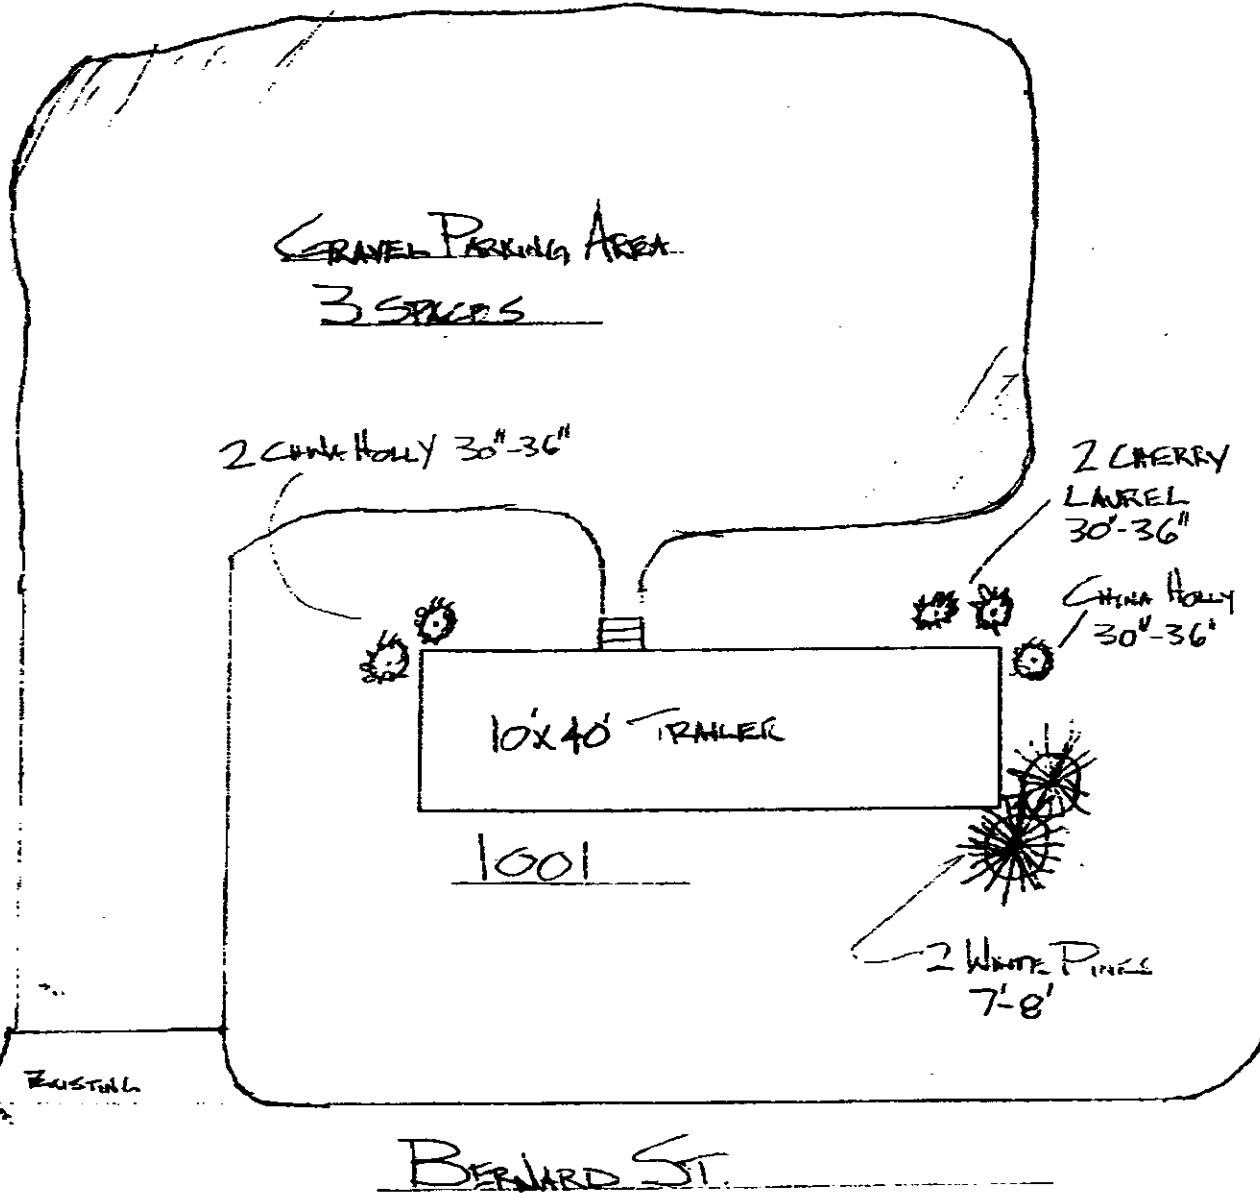 GRAVEL PARKING AREA
3 SPACES
2 CHINA HOLLY 30"-36"
2 CHERRY
LAUREL
30"-36"
CHINA HOLLY
30"-36"
10'X40' TRAILER
1001
2 WHITE PINES
7'-8'
EXISTING
BERNARD ST.